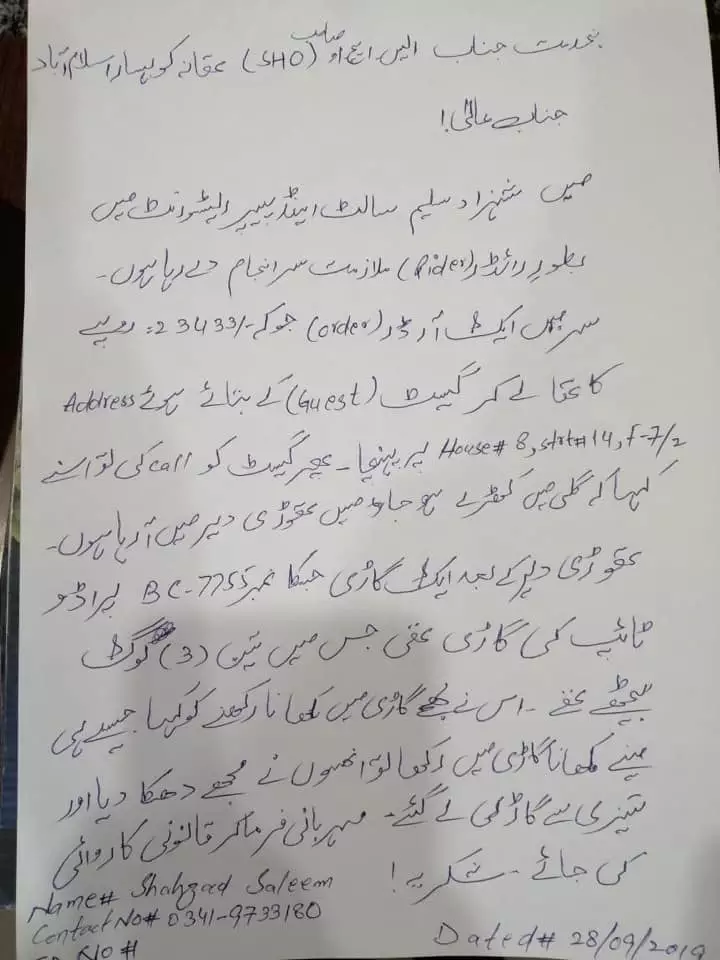 بخدمت جناب ایس ایچ او صاحب (SHO) تھانہ کوہسار اسلام آباد
جناب عالی!
میں شہزاد سلیم سالٹ اینڈ پیپر ریسٹورنٹ میں
بطور رائڈر (Rider) ملازمت سرانجام دے رہا ہوں۔
سر میں ایک آرڈر (order) جوکہ -/23433 روپے
کا تھا لے کر گیسٹ (Guest) کے بتائے ہوئے Address
House# 8, strt#14, F-7/2 پر پہنچا۔ پھر گیسٹ کو call کی تو اسنے
کہا کہ گلی میں کھڑے ہو جاؤ میں تھوڑی دیر میں آ رہا ہوں۔
تھوڑی دیر کے بعد ایک گاڑی جسکا نمبر BC-7755 پراڈو
ٹائپ کی گاڑی تھی جس میں تین (3) لوگ
بیٹھے تھے۔ اس نے مجھے گاڑی میں کھانا رکھنے کو کہا جیسے ہی
مینے کھانا گاڑی میں رکھا تو انھوں نے مجھے دھکا دیا اور
تیزی سے گاڑی لے گئے۔ مہربانی فرما کر قانونی کاروائی
کی جائے۔ شکریہ!
Name# Shahzad Saleem
Contact No# 0341-9733180
Dated# 28/09/2019